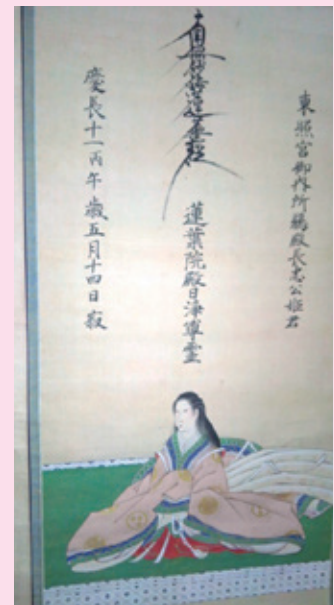 東照宮御内所鵜殿長忠公姫君
南無妙法蓮華経
蓮葉院殿日浄尊霊
慶長十一丙午歳五月十四日寂